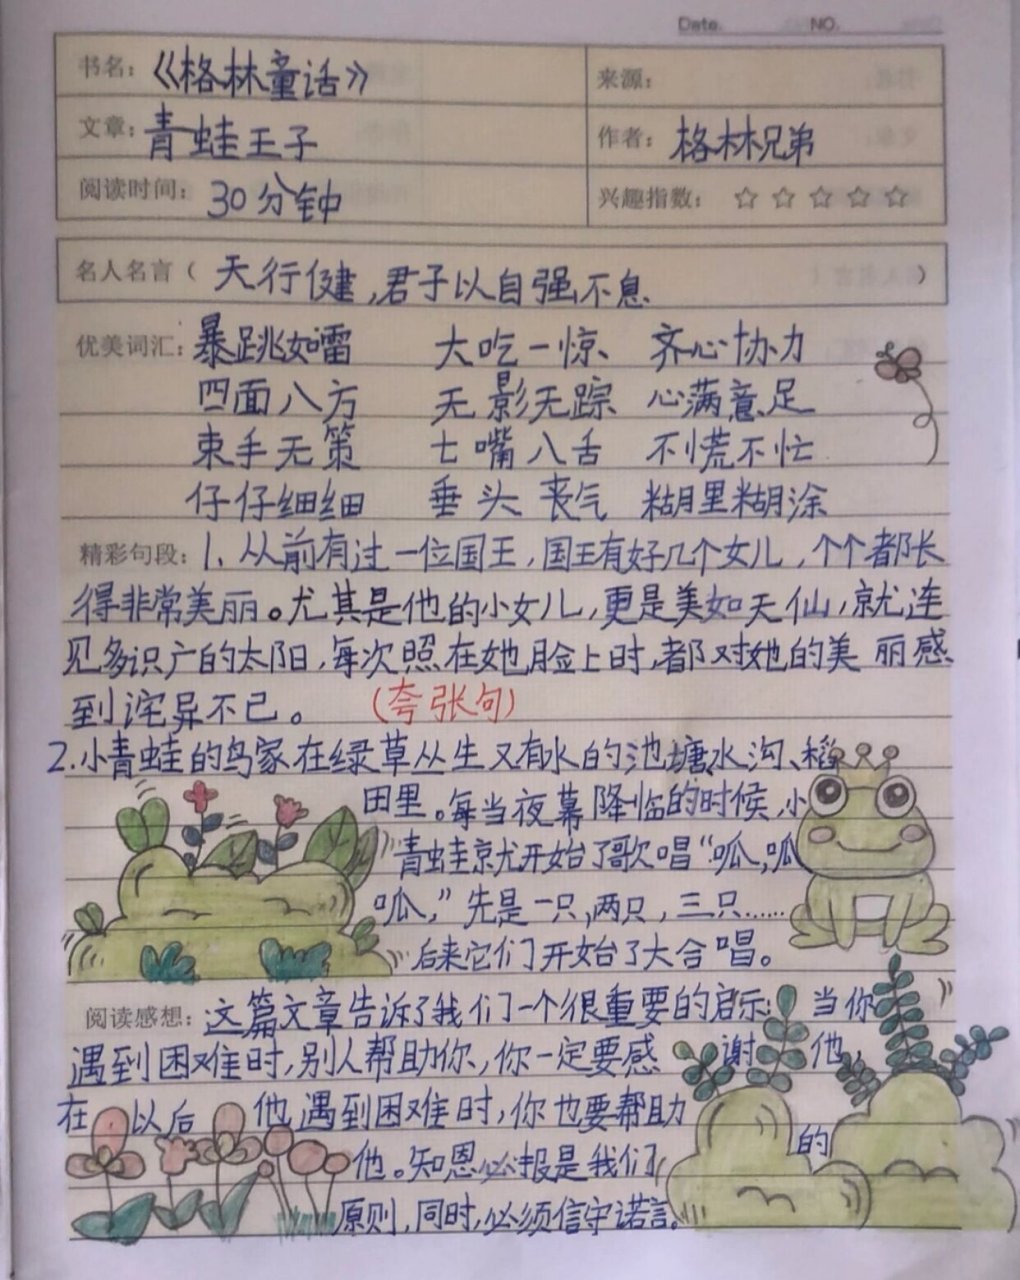 Date. NO.
书名：《格林童话》 来源：
文章：青蛙王子 作者：格林兄弟
阅读时间：30分钟 兴趣指数：☆☆☆☆☆
名人名言（天行健，君子以自强不息）
优美词汇：暴跳如雷 大吃一惊、 齐心协力
四面八方 无影无踪 心满意足
束手无策 七嘴八舌 不慌不忙
仔仔细细 垂头丧气 糊里糊涂
精彩句段：1、从前有过一位国王，国王有好几个女儿，个个都长
得非常美丽。尤其是他的小女儿，更是美如天仙，就连
见多识广的太阳，每次照在她脸上时，都对她的美丽感
到诧异不已。（夸张句）
2.小青蛙的鸟家在绿草丛生又有水的池塘、水沟、稻
田里。每当夜幕降临的时候，小
青蛙就开始了歌唱“呱，呱
呱，”先是一只，两只，三只……
后来它们开始了大合唱。
阅读感想：这篇文章告诉了我们一个很重要的启示：当你
遇到困难时，别人帮助你，你一定要感谢他，
在以后他遇到困难时，你也要帮助
他。知恩必报是我们的
原则，同时，必须信守诺言。